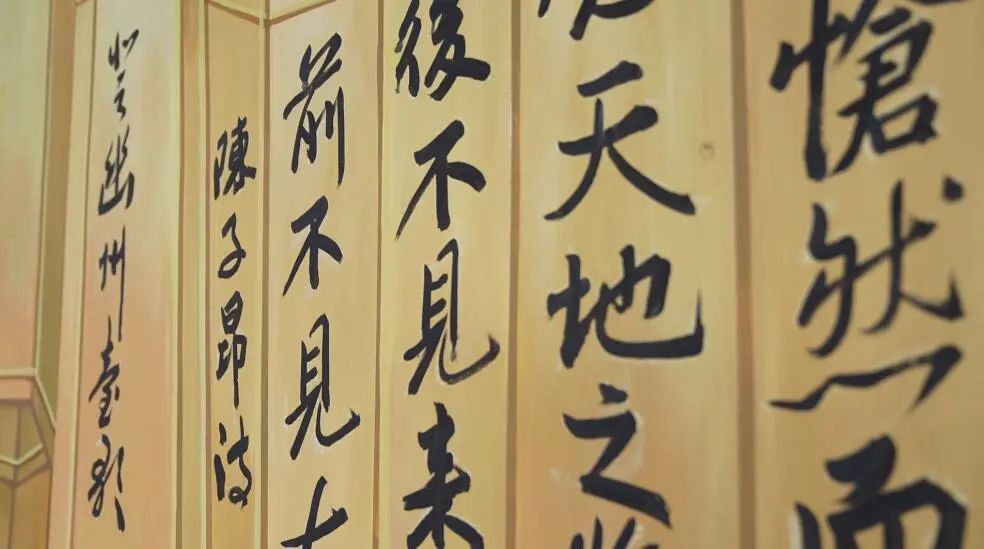 登幽州臺歌
陳子昂诗
前不見
後不見来
天地之
愴然而